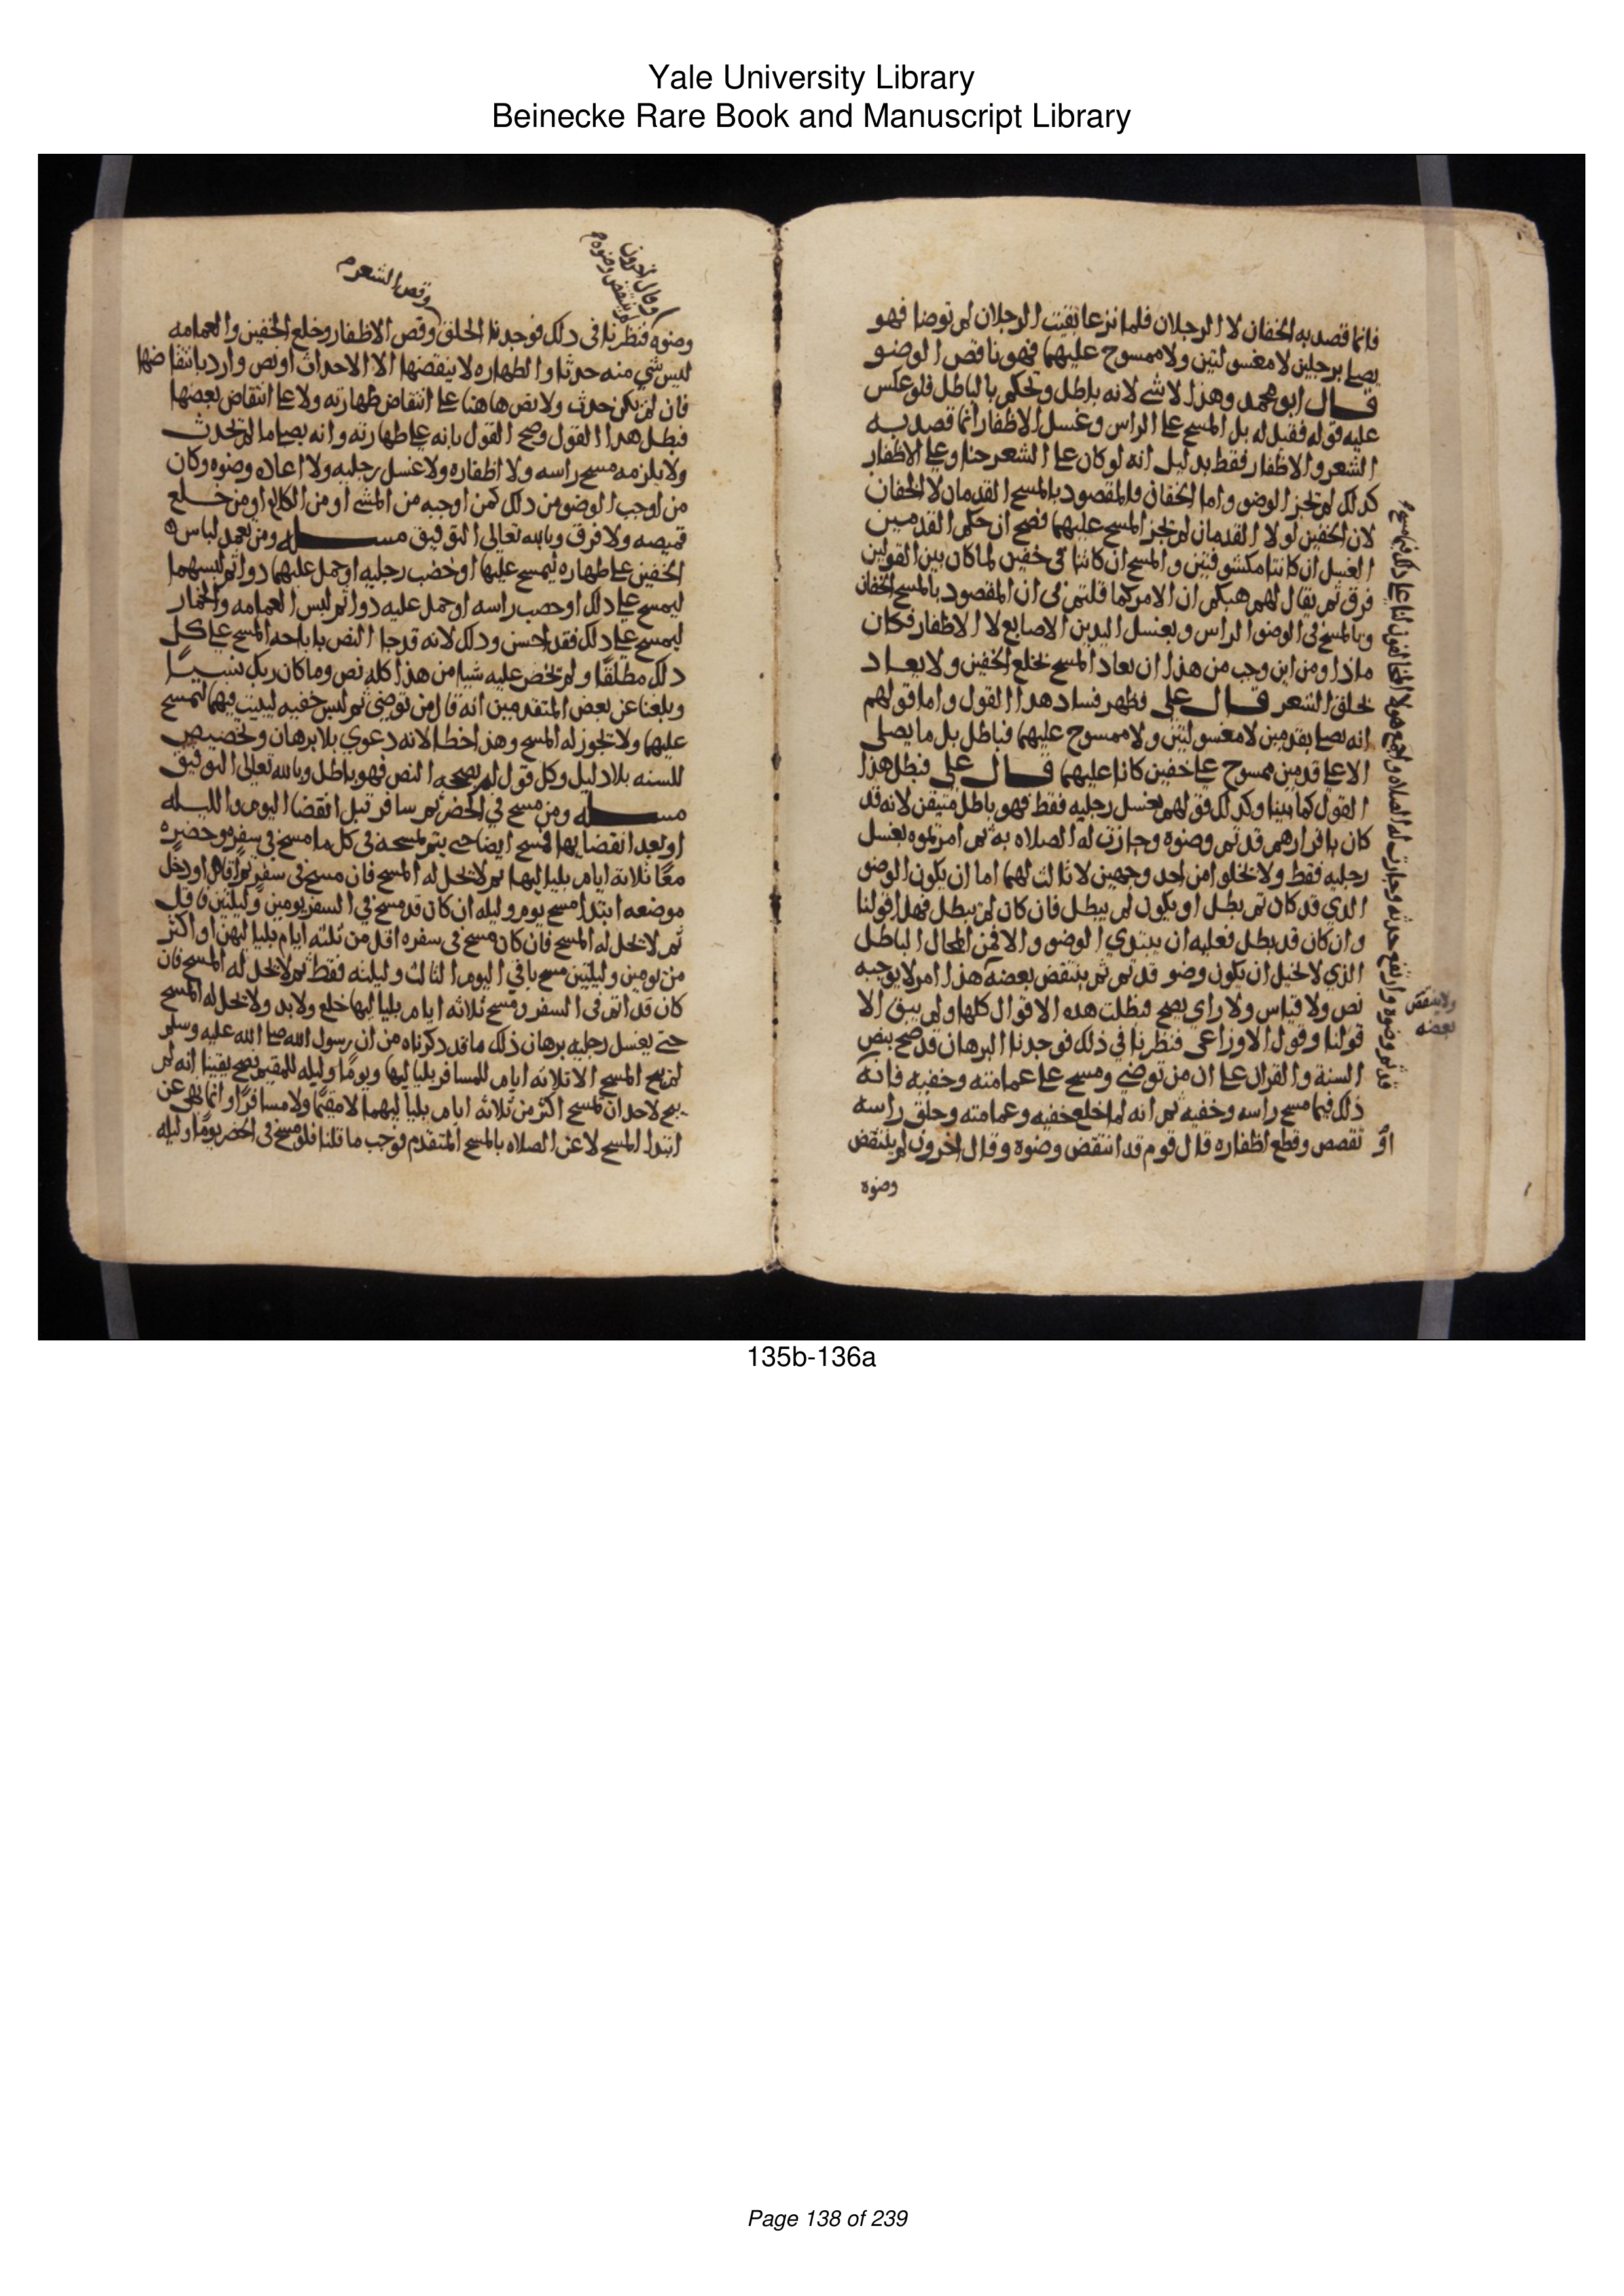 Yale University Library
Beinecke Rare Book and Manuscript Library
فانما قصد به الخفان لا الرجلان فلما نزعا بقيت الرجلان لم توضا فهو
يصلي برجلين لا مغسولتين ولا ممسوح عليهما فهو ناقص الوضو
قال ابو محمد وهذا لا شي لانه باطل وتحكم بالباطل فلو عكس
عليه قوله فقيل له بل المسح على الراس وغسل الاظفار انما قصد به
الشعر والاظفار فقط بدليل انه لو كان على الشعر حنا وعلى الاظفار
كذلك لم تجز الوضو واما الخفان فالمقصود بالمسح القدمان لا الخفان
لان الخفين لولا القدمان لم يجز المسح عليهما فصح ان حكم القدمين
الغسل ان كانتا مكشوفتين والمسح ان كانتا في خفين لما كان بين القولين
فرق ثم يقال لهم هبكم ان الامر كما قلتم في ان المقصود بالمسح الخفان
وبالمسح في الوضو الراس وبغسل اليدين الاصابع لا الاظفار فكان
ماذا ومن اين وجب من هذا ان يعاد المسح بخلع الخفين ولا يعاد
بحلق الشعر قال علي فظهر فساد هذا القول واما قولهم
انه يصلي بقدمين لا مغسولتين ولا ممسوح عليهما فباطل بل ما يصلي
الا على قدمين ممسوح على خفين كانا عليهما قال علي فبطل هذا
القول كما بينا وكذلك قولهم يغسل رجليه فقط فهو باطل متيقن لانه قد
كان باقرارهم قد تم وضوه وجازت له الصلاه به ثم امرتموه بغسل
رجليه فقط ولا يخلو من احد وجهين لا ثالث لهما اما ان يكون الوضو
الذي قد كان تم بطل او يكون لم يبطل فان كان لم يبطل فهذا قولنا
وان كان قد بطل فعليه ان يبتدي الوضو والا فمن المحال الباطل
الذي لا يخيل ان يكون وضو قد تم ثم ينتقض بعضه هذا امر لا يوجبه
نص ولا قياس ولا راي يصح فبطلت هذه الاقوال كلها ولم يبق الا
قولنا وقول الاوزاعي فنظرنا في ذلك فوجدنا البرهان قد صح بنص
السنة والقران على ان من توضى ومسح على عمامته وخفيه فانه
ذلك فيما مسح راسه وخفيه ثم انه لما خلع خفيه وعمامته وحلق راسه
او تقصص وقطع اظفاره قال قوم قد انتقض وضوه وقال اخرون لم ينتقض
وضوه
ولا ينتقض
بعضه
وقال اخرون
لم ينتقض وضوه
وقص الشعر
وضوه فنظرنا في ذلك فوجدنا الحلق وقص الاظفار وخلع الخفين والعمامه
ليس شي منه حدثا والطهاره لا ينقضها الا الاحداث او نص وارد بانتقاضها
فان لم يكن حدث ولا نص هاهنا على انتقاض طهارته ولا على انتقاض بعضها
فبطل هذا القول وصح القول بانه على طهارته وانه يصلي ما لم يحدث
ولا يلزمه مسح راسه ولا اظفاره ولا غسل رجليه ولا اعاده وضوه وكان
من اوجب الوضو من ذلك كمن اوجبه من المشي او من الكلام او من خلع
قميصه ولا فرق وبالله تعالى التوفيق مسله ومن تعمد لباس
الخفين على طهاره ليمسح عليهما او خضب رجليه او حمل عليهما دوا ثم لبسهما
ليمسح على ذلك او خضب راسه او حمل عليه دوا ثم لبس العمامه والخمار
ليمسح على ذلك فقد احسن وذلك لانه قد جا النص باباحه المسح على كل
ذلك مطلقا ولم يحض عليه شيا من هذا كله نص وما كان ربك نسيا
وبلغنا عن بعض المتقدمين انه قال من توضى ثم لبس خفيه ليبيت فيهما ليمسح
عليهما ولا تجوز له المسح وهذا خطا لانه دعوي بلا برهان وتخصيص
للسنه بلا دليل وكل قول لم يصححه النص فهو باطل وبالله تعالى التوفيق
مسله ومن مسح في الحضر ثم سافر قبل انقضا اليوم والليله
او بعد انقضايهما مسح ايضا حتى يتم لمسحه في كل ما مسح في سفره وحضره
معا ثلاثه ايام بلياليها ثم لا يحل له المسح فان مسح في سفر ثم اقام او دخل
موضعه ابتدا مسح يوم وليله ان كان قد مسح في السفر يومين وليلتين فاقل
ثم لا يحل له المسح فان كان مسح في سفره اقل من ثلثه ايام بلياليهن او اكثر
من يومين وليلتين مسح باقي اليوم الثالث وليلته فقط ثم لا يحل له المسح فان
كان قد اتم في السفر مسح ثلاثه ايام بلياليها خلع ولا بد ولا يحل له المسح
حتى يغسل رجليه برهان ذلك ما قد ذكرناه من ان رسول الله صلى الله عليه وسلم
لم يبح المسح الا ثلاثه ايام للمسافر بلياليها ويوما وليله للمقيم فصح يقينا انه لم
يبح لاحد ان يمسح اكثر من ثلاثه ايام بلياليهما لا مقيما ولا مسافرا وانما نهى عن
ابتدا المسح لا عن الصلاه بالمسح المتقدم فوجب ما قلنا فلو مسح في الحضر يوما وليله
135b-136a
Page 138 of 239